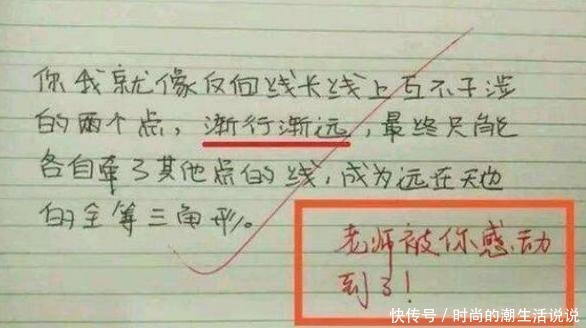 你我就像反向延长线上互不干涉
的两个点，渐行渐远，最终只能
各自牵了其他点的线，成为远在天边
的全等三角形。
老师被你感动
到了！
快传号／时尚的潮生活说说